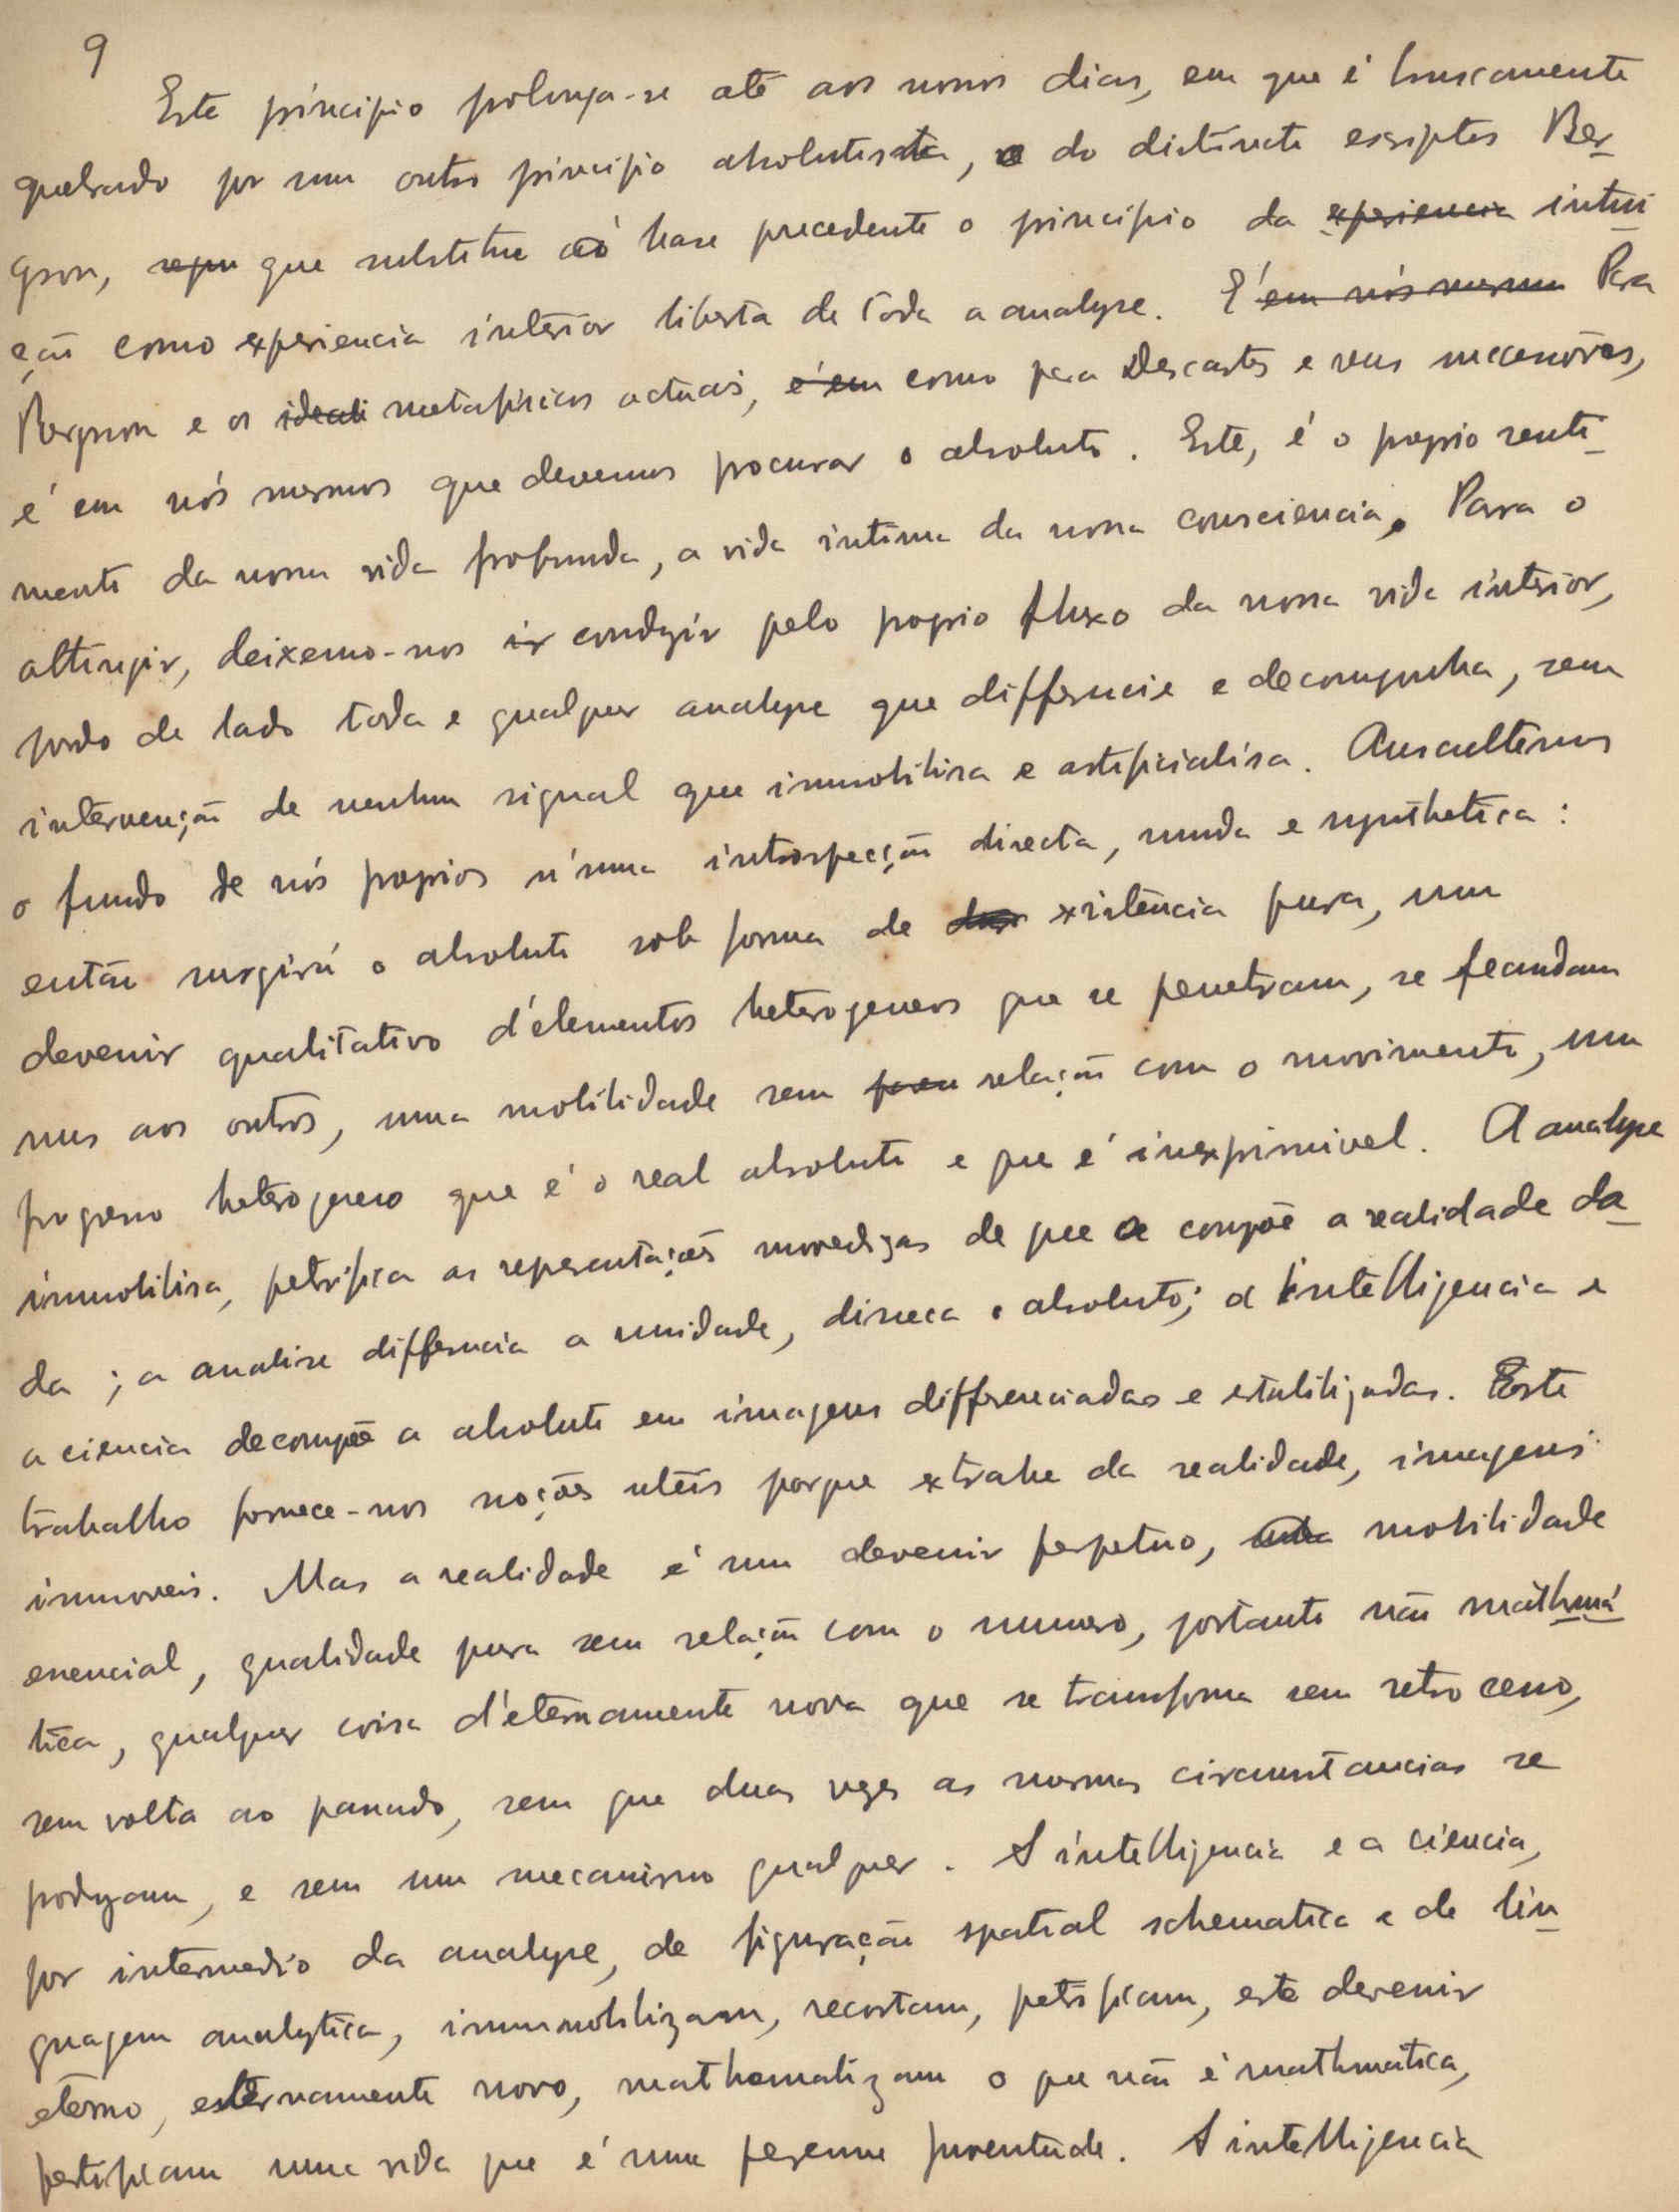 9
Este principio prolonga-se até aos nossos dias, em que é bruscamente
quebrado por um outro principio absolutista, o do distincto escriptor Ber-
gson, que substitue aó base precedente o principio da experiencia intui
ção como experiencia interior liberta de toda a analyse. E' em nós mesmos Para
Bergson e os ideali metafisicos actuais, é em como para Descartes e seus successores,
é em nós mesmos que devemos procurar o absoluto. Este, é o proprio senti-
mento da nossa vida profunda, a vida intima da nossa consciencia. Para o
attingir, deixemo-nos ir conduzir pelo proprio fluxo da nossa vida interior,
pondo de lado toda e qualquer analyse que differencie e decomponha, sem
intervenção de nenhum signal que immobilisa e artificialisa. Auscultemos
o fundo de nós proprios n'uma introspecção directa, muda e synthetica:
então surgirá o absoluto sob forma de existência pura, um
devenir qualitativo d'elementos heterogeneos que se penetram, se fecundam
uns aos outros, uma mobilidade sem relação com o movimento, um
progresso heterogeneo que é o real absoluto e que é inexprimivel. A analyse
immobilisa, petrifica as representações movediças de que se compõe a realidade da-
da; a analise differencia a unidade, disseca o absoluto; a intelligencia e
a ciencia decompõe a absoluto em imagens differenciadas e estabilizadas. Este
trabalho fornece-nos noções uteis porque extrahe da realidade, imagens
immoveis. Mas a realidade é um devenir perpetuo, uma mobilidade
essencial, qualidade pura sem relação com o numero, portanto não mathmá
tica, qualquer coisa d'eternamente nova que se transforma sem retrocesso,
sem volta ao passado, sem que duas vezes as mesmas circunstancias se
produzam, e sem um mecanismo qualquer. A intelligencia e a ciencia,
por intermedio da analyse, de figuração spatial schematica e de lin-
guagem analytica, immmobilizam, recortam, petrificam, este devenir
eterno, eternamente novo, mathematizam o que não é mathmatica,
petrificam uma vida que é uma perenne juventude. A intelligencia